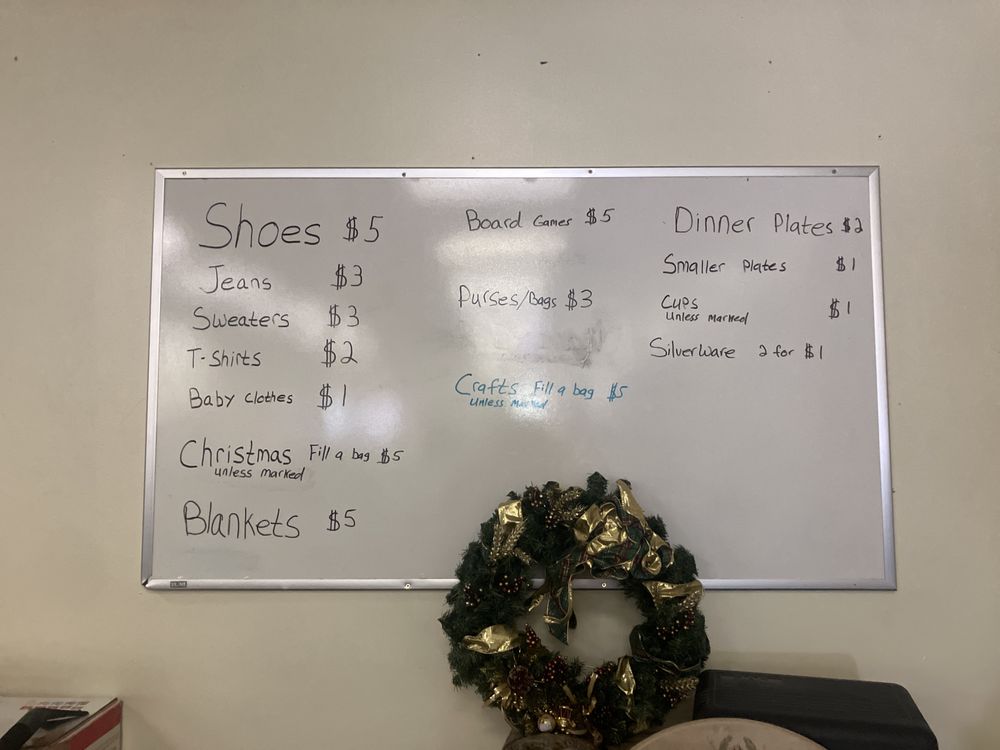 Shoes $5
Jeans $3
Sweaters $3
T-Shirts $2
Baby clothes $1
Christmas Fill a bag $5
unless marked
Blankets $5
Board Games $5
Purses/Bags $3
Crafts Fill a bag $5
unless marked
Dinner Plates $2
Smaller Plates $1
Cups $1
unless marked
Silverware 2 for $1